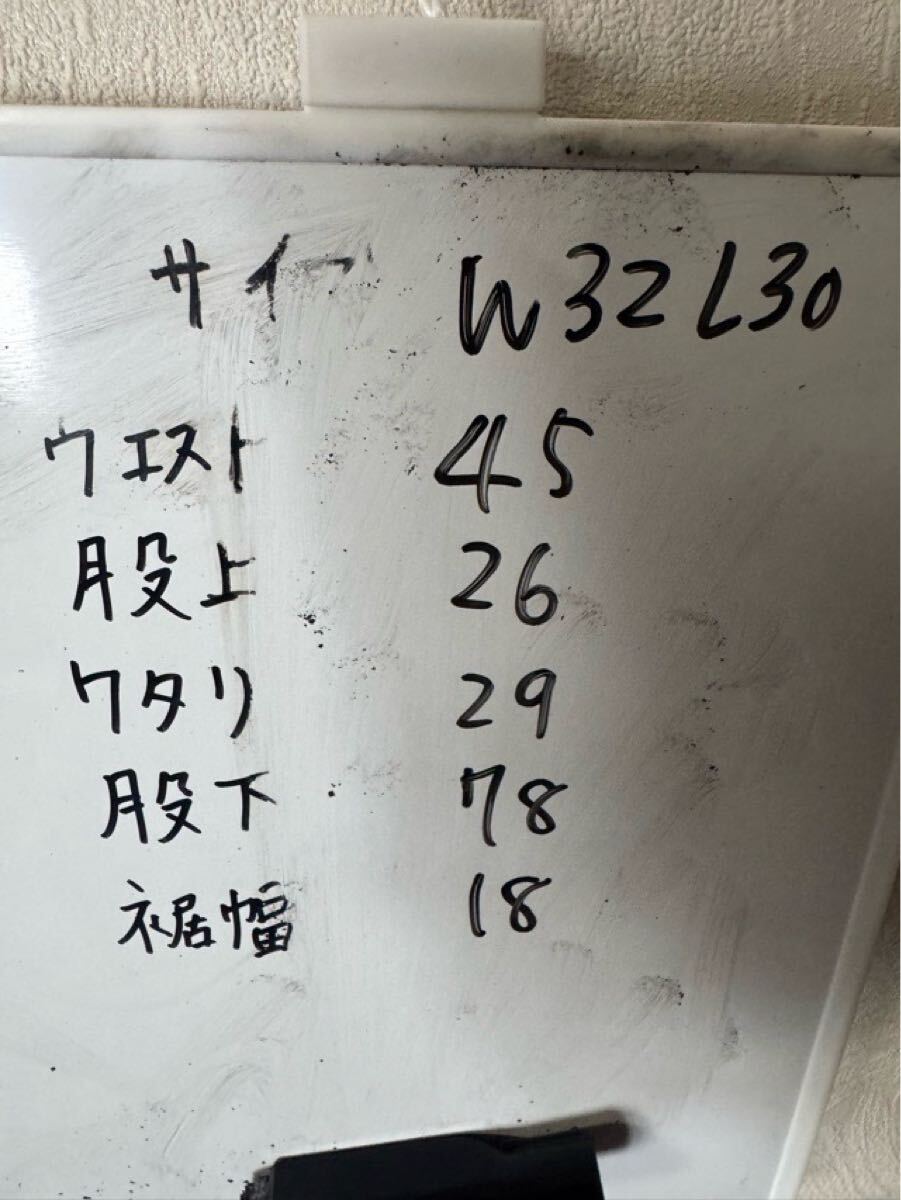 サイ W32 L30
ウエスト 45
股上 26
ワタリ 29
股下 78
裾幅 18